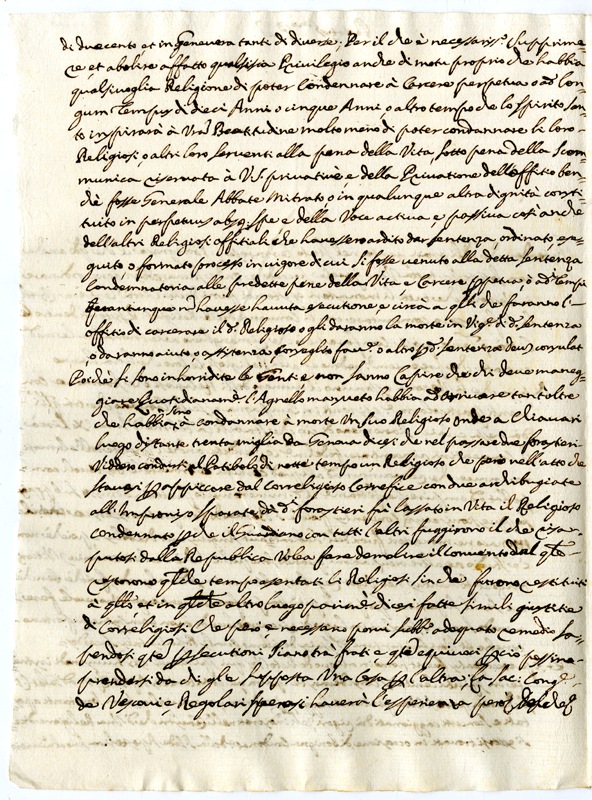 di duecento, et in Genevera tanti di diverse; Per il che è necessariss.º supprime-
re, et abolire affatto qualsisia Privilegio anche di motu proprio che habbia
qualsiveglia Religione di poter Condennare à Carcere perpetua o ad lon-
gum Tempus di dieci Anni o cinque Anni o altro tempo che lo spirito San-
to inspirarà à Vra Beatitudine molto meno di poter condannare li loro
Religiosi o altri loro serventi alla pena della Vita, sotto pena della Scom-
munica riservata à V.S. privative e della Privatione dell'offitio ben-
chè fosse Generale Abbate Mitrato o in qualunque altra dignità consti-
tuito in perpetuum absq. spe e della Voce activa e passiva così anche
dell'altri Religiosi offitiali che havessero ardito dar sentenza, ordinato, ese-
quito o formato processo in vigore di cui si fosse venuto alla detta sentenza
Condemnatoria alle predette pene della Vita e Carcere perpetua, ò ad Tempus
quantunque nō havesse havuta esecutione e circa à quelli che faranno l'
offitio di carcerare il d.º Religioso o gli daranno la morte in Vig.e di d.ª sentenza
o daranno aiuto o assistenza, conseglio fav.e o altro
Poiche si sono inhorridite le Genti e non sanno Capire che chi deve maneg-
giare quotidianam.e l'Agnello mansueto habbia ad arrivare tant'oltre
che habbia sino à condannare à morte Un suo Religioso onde a Chiavari
luogo distante trenta miglia da Genova dicesi che nel passare due forastieri
Viddero condursi al Patibolo di notte tempo un Religioso che però nell'atto che
stavasi per suspiccare dal Correligioso Carnefice con due archibugiate
all' sparate da d.i forastieri fù lassato in Vita il Religioso
condennato perche il Guardiano con tutti l'altri fuggirono il che risa-
putosi dalla Republica volea fare demolire il convento dal q.le
restorono q.lche tempo assentati li Religiosi sin che furono restituiti
à q.llo, et in q.lche altro luogo dicesi fatte simili giustitie
di Correligiosi Che però è necessario porvi subb.º adequato remedio sa-
pendosi q.te persecutioni Siano trà frati e q.te equivoci pessima-
prendersi da chi gle supposta Una Cosa per l'altra. La Sac: Cong.e
de Vescovi e Regolari haverà l'esperienza